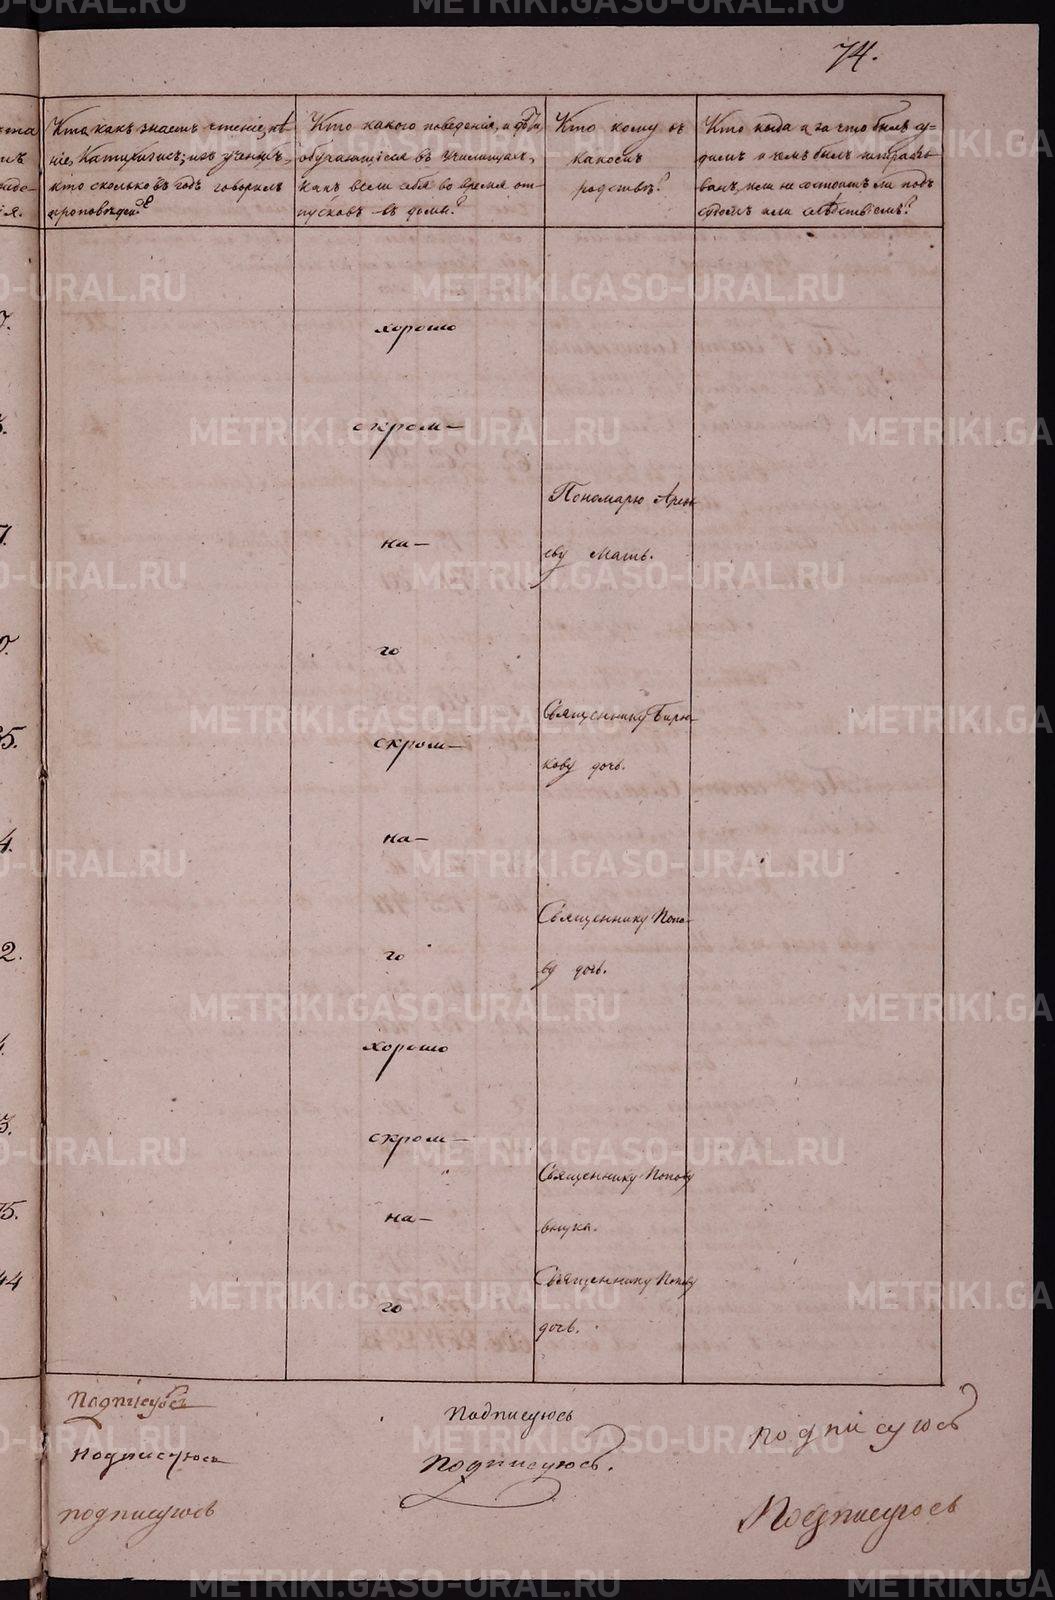 74.
Кто какъ знаетъ чтеніе, пѣ-
ніе, Катихизисъ; изъ ученик.
кто сколько въ годъ говорилъ
проповѣдей?
Кто какого поведенія, и дѣти,
обучающіеся въ училищахъ,
какъ вели себя во время от-
пусковъ въ домы?
Кто кому въ
какомъ
родствѣ?
Кто когда и за что былъ су-
димъ и чѣмъ былъ штрафо-
ванъ, или не состоитъ ли подъ
судомъ или слѣдствіемъ?
хорошо
скром-
Пономарю
еву Мать.
на-
го
Священнику Бирю-
кову дочь.
скром-
на-
Священнику Попо-
ву дочь.
го
хорошо
скром-
Священнику Попову
внука.
на-
Священнику Попову
дочь.
го
Подписуюсь
Подписуюсь
подписуюсь
Подписуюсь
Подписуюсь.
подписуюсь
Подписуюсь
METRIKI.GASO-URAL.RU